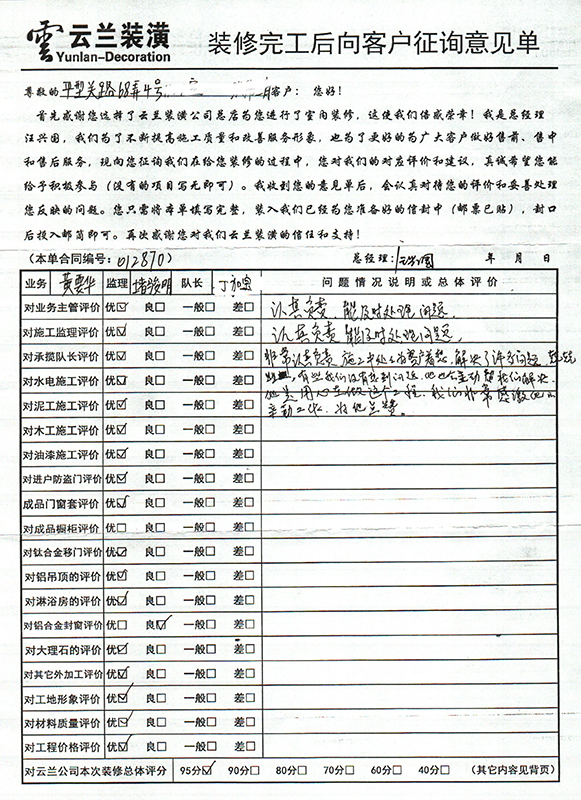 雲 云兰装潢
Yunlan-Decoration
装修完工后向客户征询意见单
尊敬的平型关路68弄4号 客户: 您好!
首先感谢您选择了云兰装潢公司总店为您进行了室内装修,这使我们倍感荣幸!我是总经理
汪兴国,我们为了不断提高施工质量和改善服务形象,也为了更好的为广大客户做好售前、售中
和售后服务,现向您征询我们在给您装修的过程中,您对我们的对应评价和建议,真诚希望您能
给予积极参与(没有的项目写无即可)。我收到您的意见单后,会认真对待您的评价和妥善处理
您反映的问题。您只需将本单填写完整,装入我们已经为您准备好的信封中(邮票已贴),封口
后投入邮筒即可。再次感谢您对我们云兰装潢的信任和支持!
(本单合同编号: 012870) 总经理: 年 月 日
业务 黄雲华 监理 队长 问题情况说明或总体评价
对业务主管评价 优☑ 良□ 一般□ 差□ 认真负责 能及时处理问题.
对施工监理评价 优☑ 良□ 一般□ 差□ 认真负责 能及时处理问题.
对承揽队长评价 优☑ 良□ 一般□ 差□ 非常认真负责 施工中处处为客户着想.解决了许多问题
对水电施工评价 优☑ 良□ 一般□ 差□ 有些我们没有想到问题 他也主动帮我们解决.
对泥工施工评价 优☑ 良□ 一般□ 差□ 他是用心在做这个工程.我们非常感激他的
辛勤工作.为他点赞。
对木工施工评价 优☑ 良□ 一般□ 差□
对油漆施工评价 优☑ 良□ 一般□ 差□
对进户防盗门评价 优☑ 良□ 一般□ 差□
成品门窗套评价 优☑ 良□ 一般□ 差□
对成品橱柜评价 优□ 良□ 一般□ 差□
对钛合金移门评价 优☑ 良□ 一般□ 差□
对铝吊顶的评价 优☑ 良□ 一般□ 差□
对淋浴房的评价 优☑ 良□ 一般□ 差□
对铝合金封窗评价 优□ 良☑ 一般□ 差□
对大理石的评价 优☑ 良□ 一般□ 差□
对其它外加工评价 优☑ 良□ 一般□ 差□
对工地形象评价 优☑ 良□ 一般□ 差□
对材料质量评价 优☑ 良□ 一般□ 差□
对工程价格评价 优☑ 良□ 一般□ 差□
对云兰公司本次装修总体评分 95分☑ 90分□ 80分□ 70分□ 60分□ 40分□ (其它内容见背页)